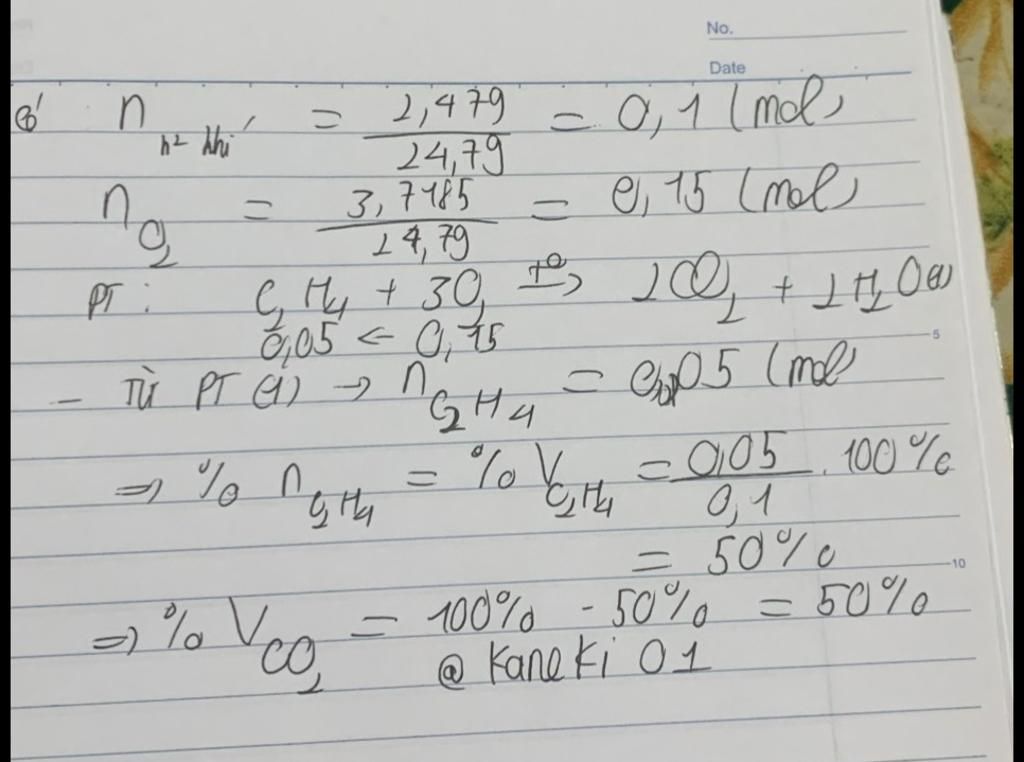 No.
Date
a) n h² khí = 2,479 / 24,79 = 0,1 (mol)
n O₂ = 3,7185 / 24,79 = 0,15 (mol)
PT: C₂H₄ + 3O₂ t⁰→ 2CO₂ + 2H₂O (1)
0,05 ← 0,15
5
- Từ PT (1) → n C₂H₄ = 0,05 (mol)
=> % n C₂H₄ = % V C₂H₄ = 0,05 / 0,1 . 100%
= 50%
10
=> % V CO₂ = 100% - 50% = 50%
@ Kaneki 01